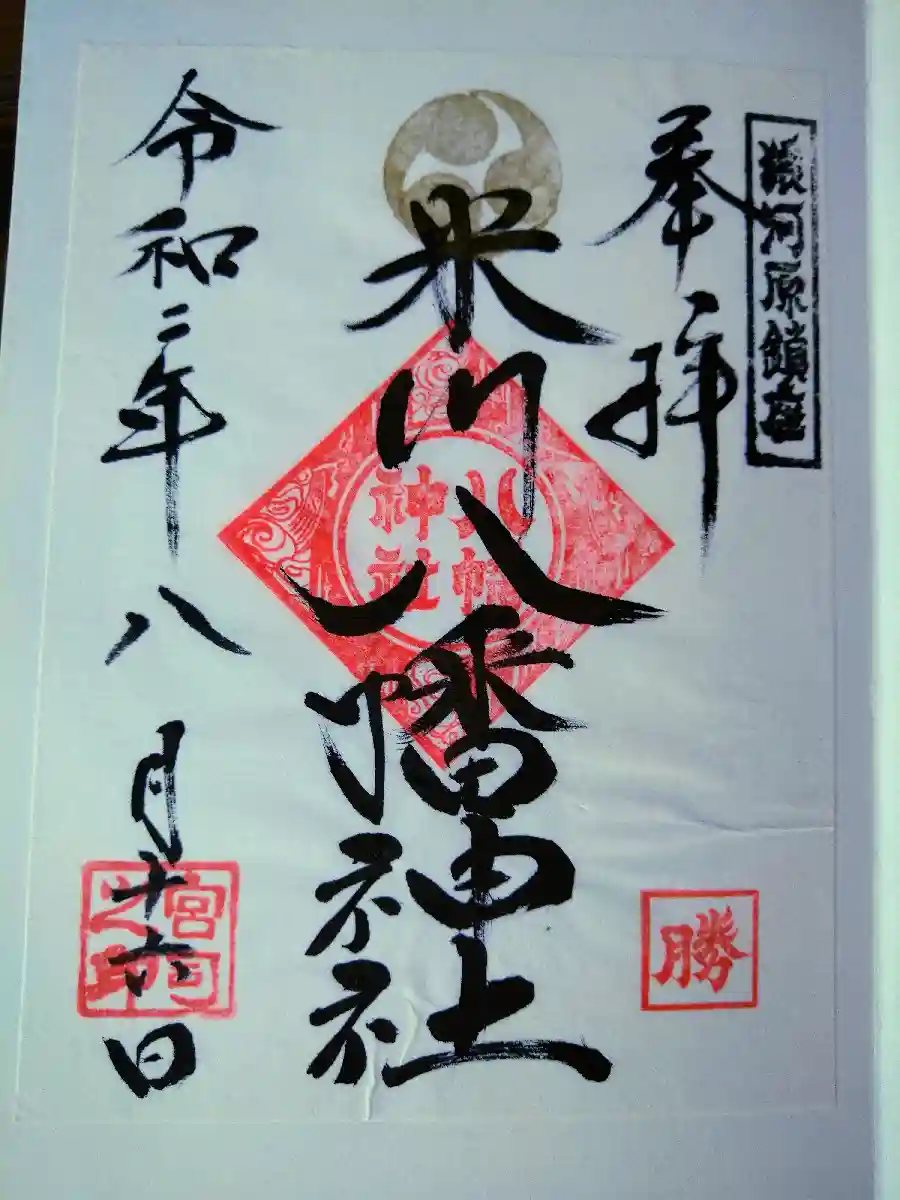 河原鎮座
奉拝
米川八幡神社
八幡
神社
勝
令和二年八月十六日
宮司
之印